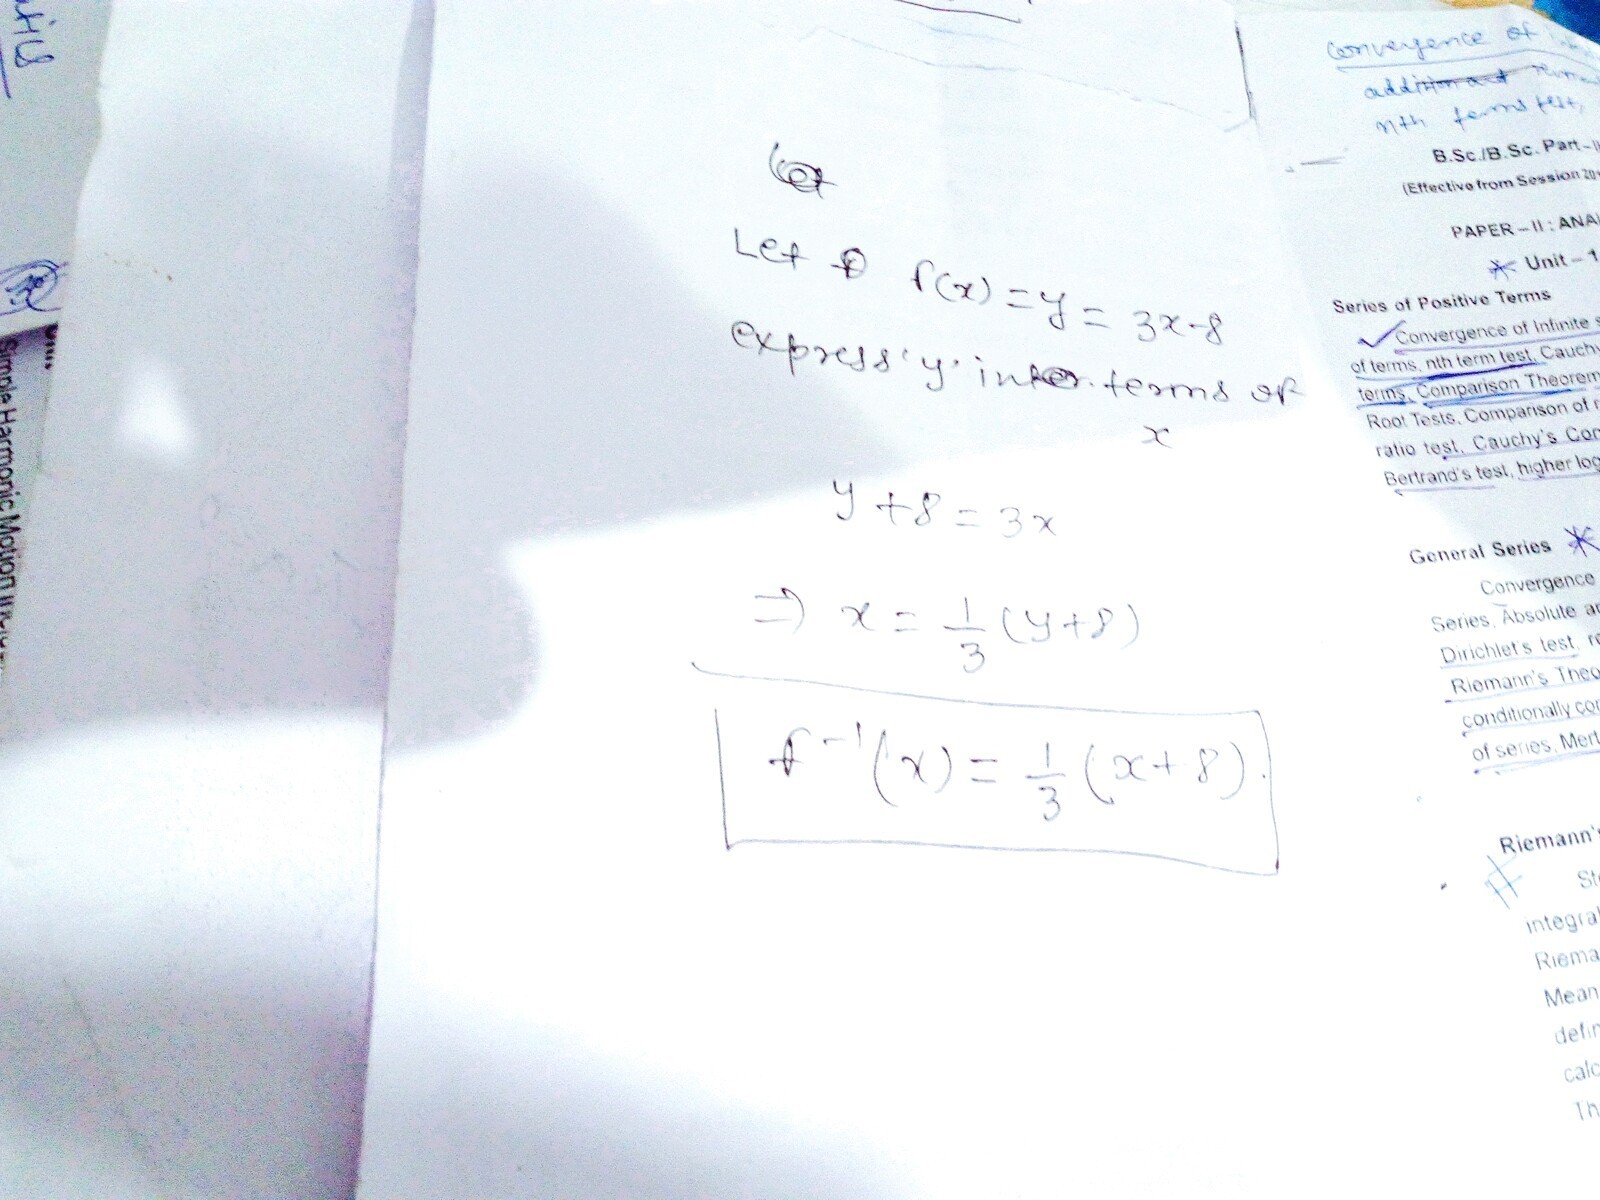 Let f(x) = y = 3x-8
express 'y' in terms of
x
y + 8 = 3x
⇒ x = 1/3 (y+8)
f⁻¹(x) = 1/3 (x+8).
Convergence of
nth terms test,
B.Sc./B.Sc. Part-II
(Effective from Session 20
PAPER – II : ANA
* Unit – 1
Series of Positive Terms
✓ Convergence of Infinite s
of terms, nth term test, Cauchy
terms, Comparison Theorem
Root Tests, Comparison of r
ratio test, Cauchy's Con
Bertrand's test, higher log
General Series *
Convergence
Series, Absolute
Dirichlet's test,
Riemann's Theo
conditionally con
of series, Mert
Riemann's
integral
Riema
Mean
defin
calc
Th
Simple Harmonic Motion